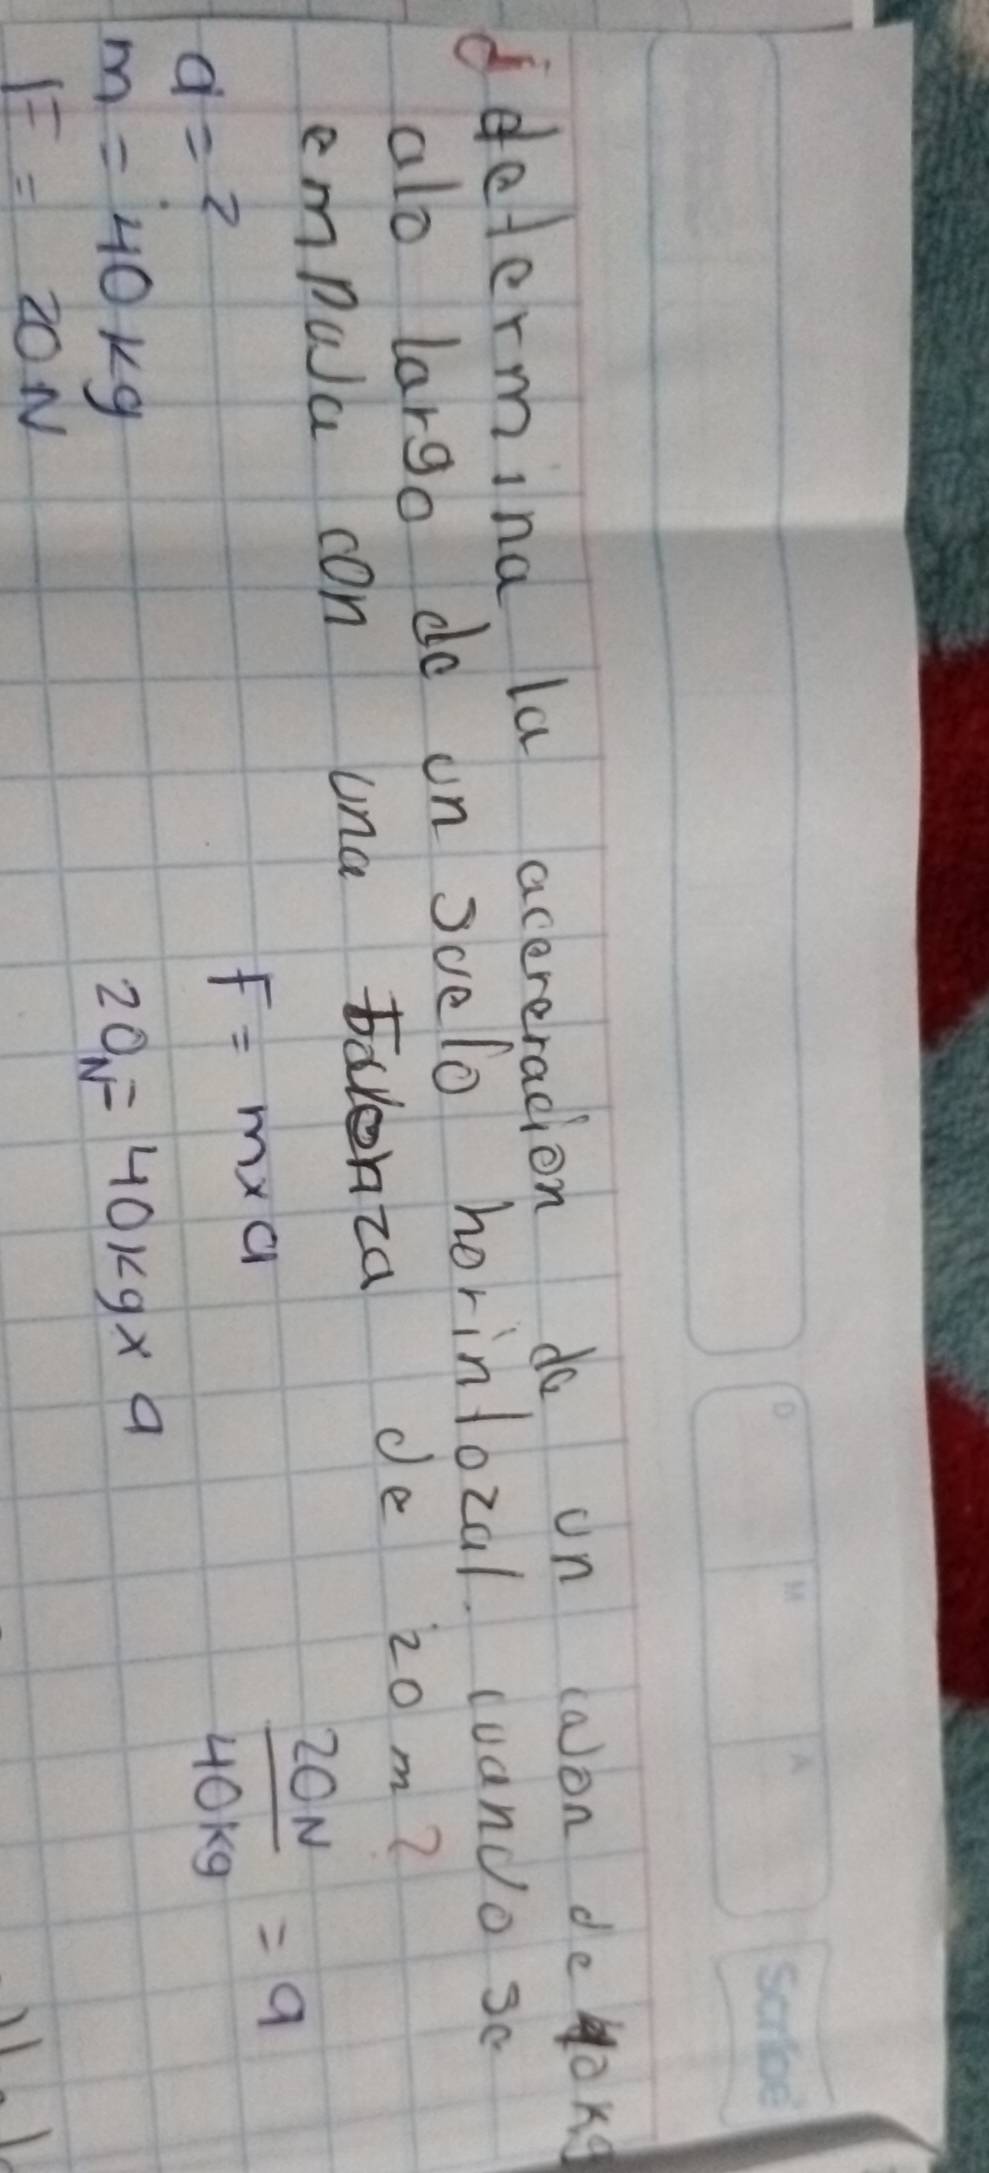 D M A Scribe
determina la acereracion de un cajon de 40 kg
alo largo de un suelo horintozal. cuando se
empuja con una
de 20 m?
a = ?
m = 40 kg
F = 20 N
F = m x a
20N = 40 kg x a
20N
40kg
= a